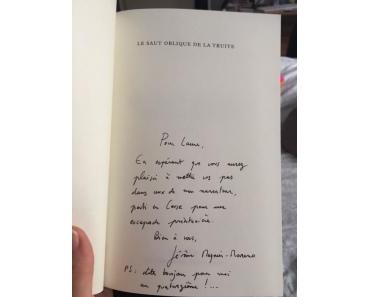 LE SAUT OBLIQUE DE LA TRUITE
Pour Laure,
En espérant que vous aurez
plaisir à mettre vos pas
dans ceux de mon narrateur,
parti en Corse pour une
escapade
Bien à vous,
Jérôme Magnier-Moreno
PS: dites bonjour pour moi
au quatorzième !...